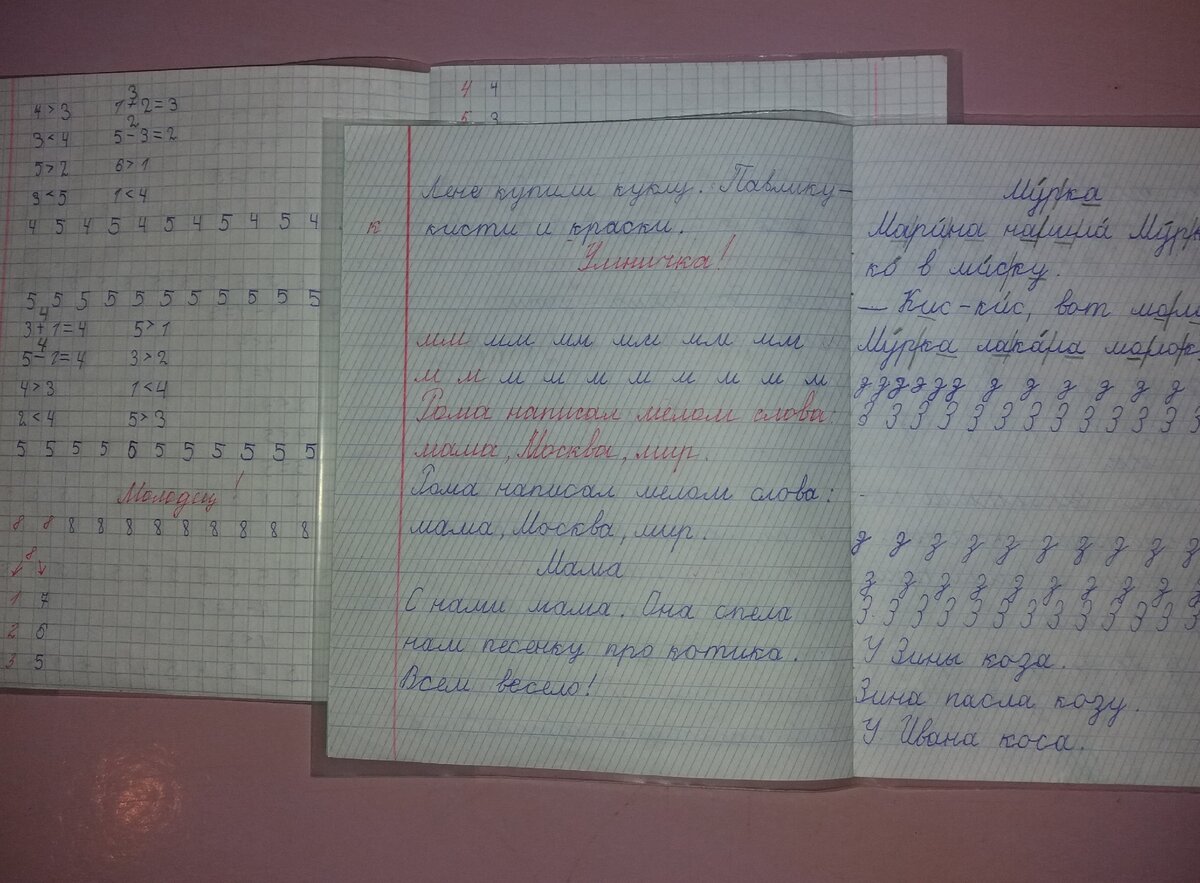 3
4 > 3 1 + 2 = 3
2
3 < 4 5 - 3 = 2
5 > 2 6 > 1
3 < 5 1 < 4
4 5 4 5 4 5 4 5 4 5 4
5 5 5 5 5 5 5 5 5 5 5
4
3 + 1 = 4 5 > 1
4
5 - 1 = 4 3 > 2
4 > 3 1 < 4
2 < 4 5 > 3
5 5 5 5 6 5 5 5 5 5 5
Молодец!
8 8 8 8 8 8 8 8 8 8 8
8
1 7
2 6
3 5
4 4
5 3
Лене купили куклу. Павлику -
к кисти и краски.
Умничка!
мм мм мм мм мм мм
м м м м м м м м м м
Рома написал мелом слова:
мама, Москва, мир.
Рома написал мелом слова:
мама, Москва, мир.
Мама
С нами мама. Она спела
нам песенку про котика.
Всем весело!
Му́рка
Мари́на налила́
ко́ в ми́ску.
— Кис-ки́с, вот
Му́рка лака́ла
З З З З З З З З З З З З
з з з з з з з з з з
з з з з з з з з з
З З З З З З З З З З З З
У Зины коза.
Зина пасла козу.
У Ивана коса.